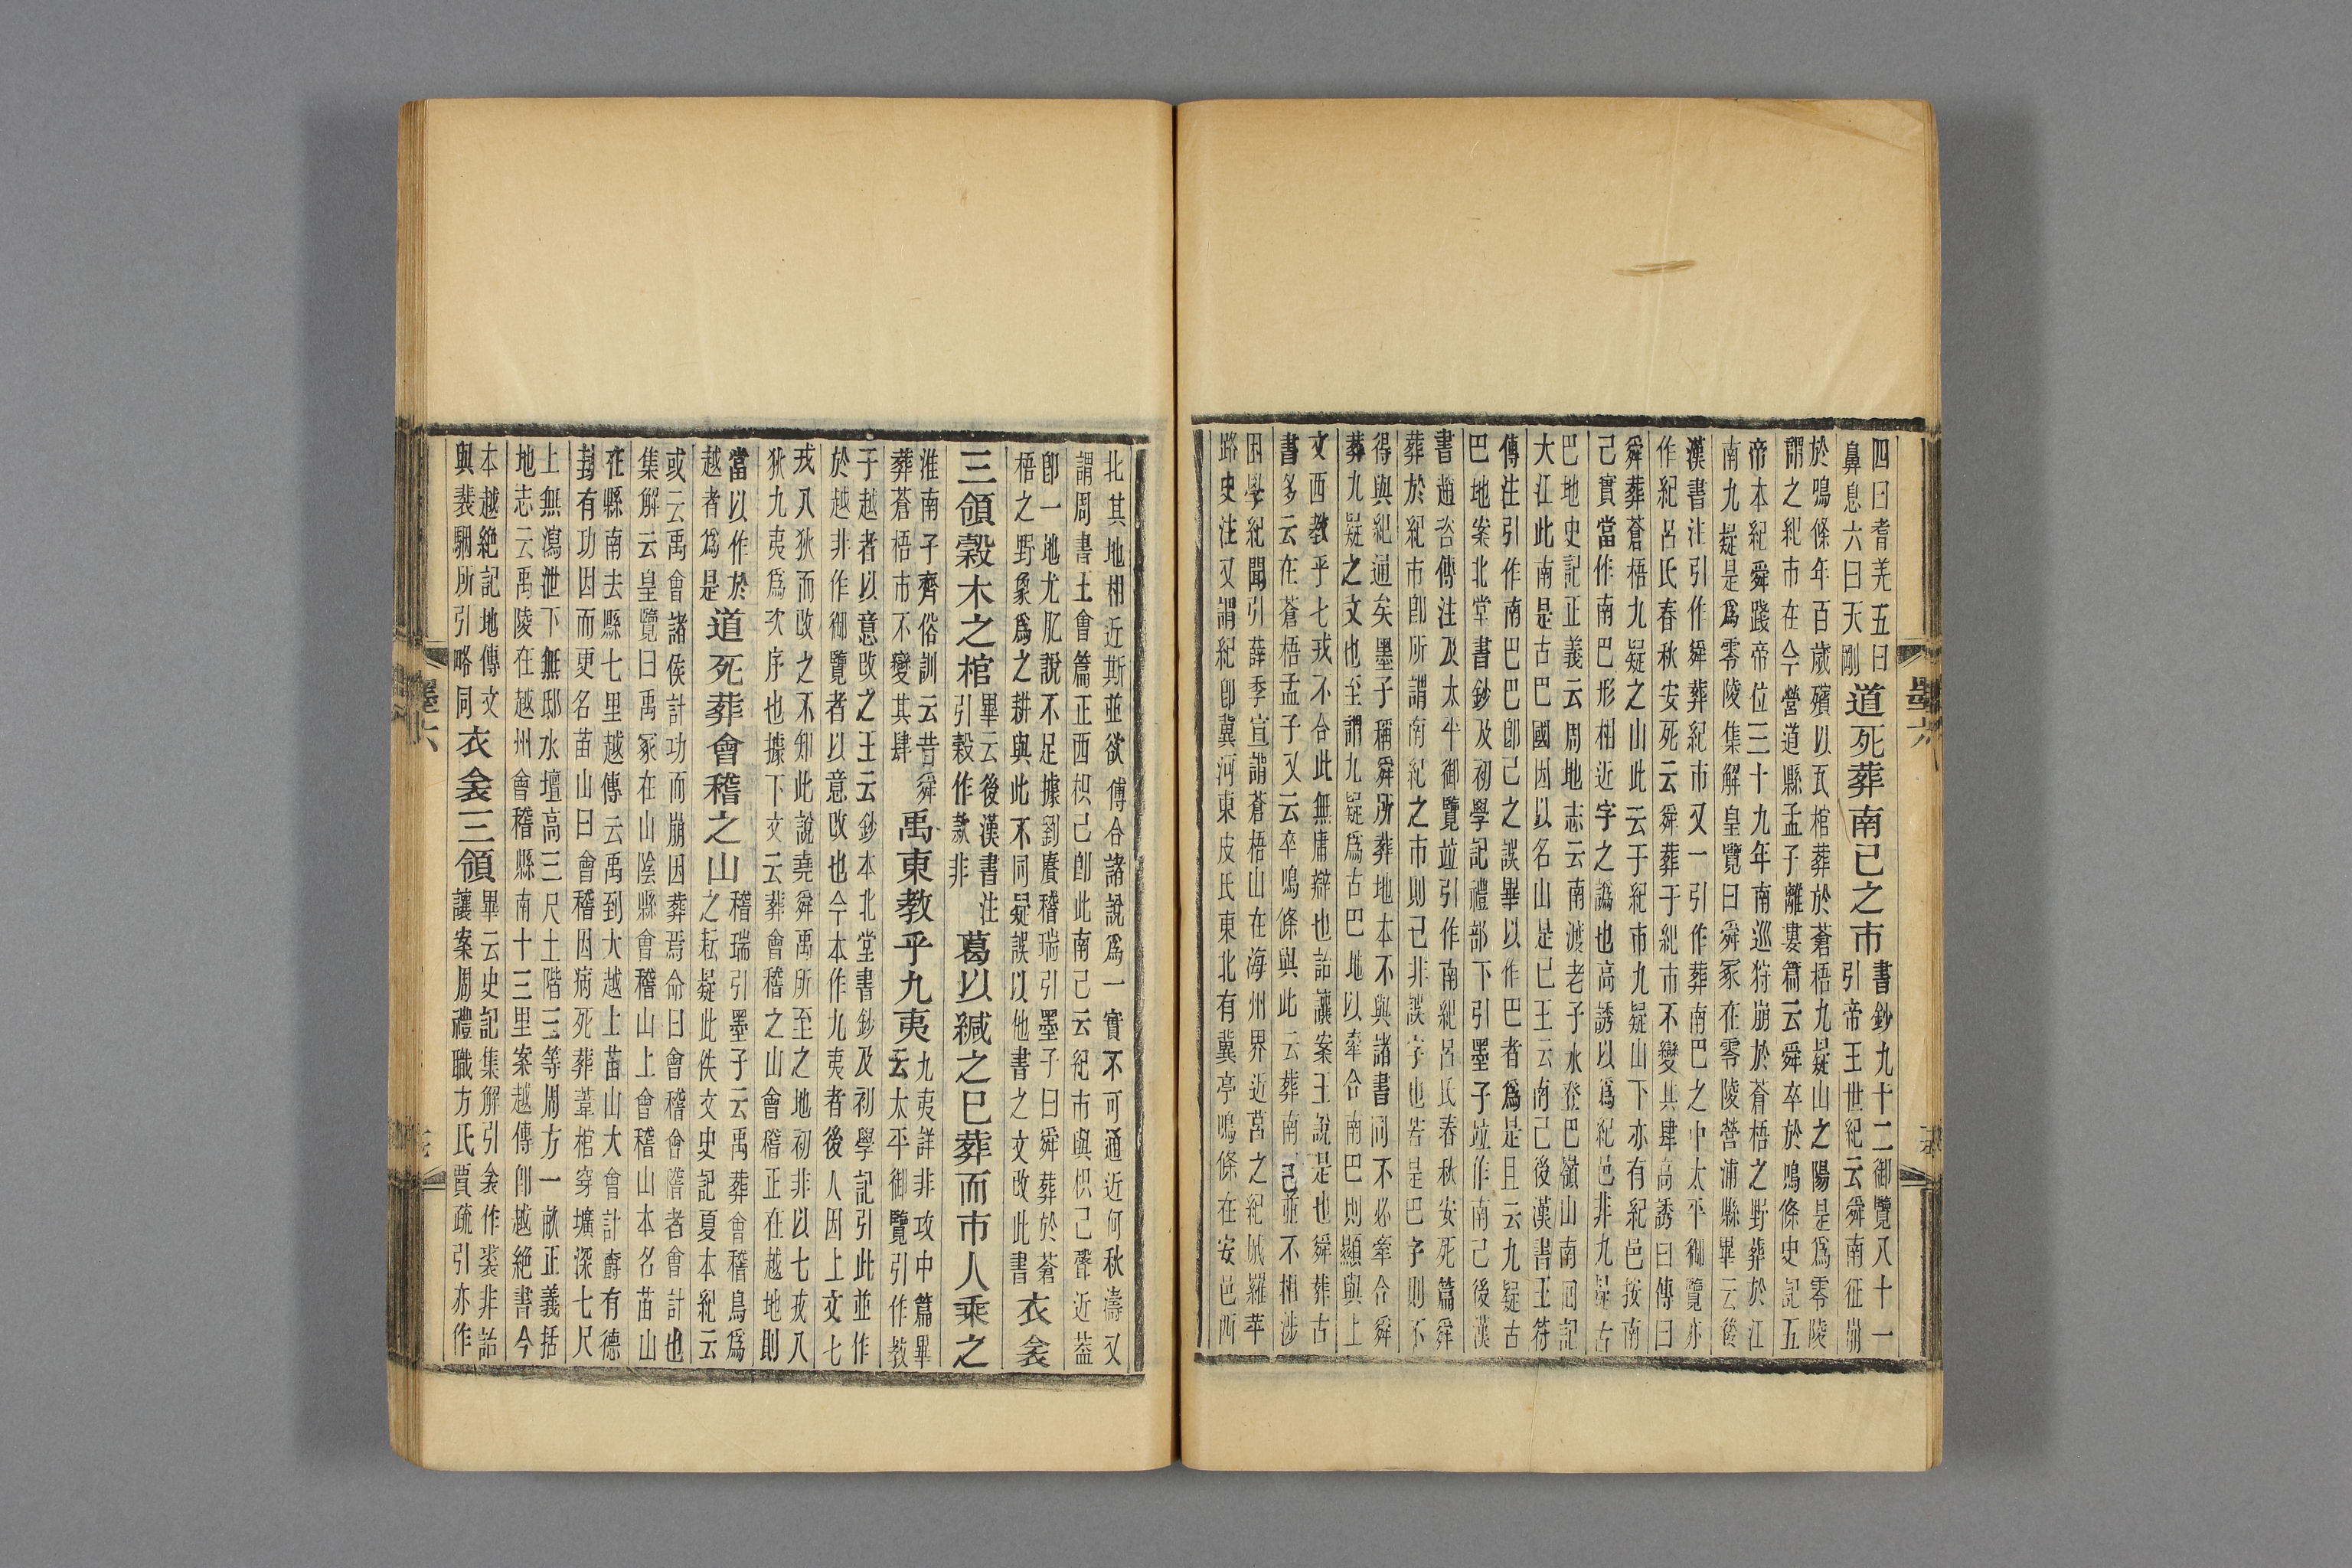 四曰耆羌五曰
鼻息六曰天剛
道死葬南己之市
書鈔九十二御覽八十一
引帝王世紀云舜南征崩
於鳴條年百歲殯以瓦棺葬於蒼梧九疑山之陽是爲零陵
謂之紀市在今營道縣孟子離婁篇云舜卒於鳴條史記五
帝本紀舜踐帝位三十九年南巡狩崩於蒼梧之野葬於江
南九疑是爲零陵集解皇覽曰舜冢在零陵營浦縣畢云後
漢書注引作舜葬紀市又一引作葬南巴之中太平御覽亦
作紀呂氏春秋安死云舜葬于紀市不變其肆高誘曰傳曰
舜葬蒼梧九疑之山此云于紀市九疑山下亦有紀邑按南
己實當作南巴形相近字之譌也高誘以爲紀邑非九疑古
巴地史記正義云周地志云南渡老子水登巴嶺山南回記
大江此南是古巴國因以名山是巳王云南己後漢書王符
傳注引作南巴巴卽己之誤畢以作巴者爲是且云九疑古
巴地案北堂書鈔及初學記禮部下引墨子竝作南己後漢
書趙咨傳注及太平御覽竝引作南紀呂氏春秋安死篇舜
葬於紀市卽所謂南紀之市則己非誤字也若是巴字則不
得與紀通矣墨子稱舜所葬地本不與諸書同不必牽合舜
葬九疑之文也至謂九疑爲古巴地以牽合南巴則顯與上
文西教乎七戎不合此無庸辯也詒讓案王說是也舜葬古
書多云在蒼梧孟子又云卒鳴條與此云葬南己並不相涉
困學紀聞引薛季宣謂蒼梧山在海州界近莒之紀城羅苹
路史注又謂紀卽冀河東皮氏東北有冀亭鳴條在安邑西
墨六
北其地相近斯並欲傅合諸說爲一實不可通近何秋濤又
謂周書王會篇正西枳己卽此南己云紀市與枳己聲近葢
卽一地尤肊說不足據劉賡稽瑞引墨子曰舜葬於蒼
梧之野象爲之耕與此不同疑誤以他書之文改此書
衣衾
三領榖木之棺
畢云後漢書注
引榖作款非
葛以緘之已葬而市人乘之
淮南子齊俗訓云昔舜
葬蒼梧市不變其肆
禹東教乎九夷
九夷詳非攻中篇畢
云太平御覽引作教
于越者以意改之王云鈔本北堂書鈔及初學記引此並作
於越非作御覽者以意改也今本作九夷者後人因上文七
戎八狄而改之不知此說堯舜禹所至之地初非以七戎八
狄九夷爲次序也據下文云葬會稽之山會稽正在越地則
當以作於
越者爲是
道死葬會稽之山
稽瑞引墨子云禹葬會稽鳥爲
之耘疑此佚文史記夏本紀云
或云禹會諸侯計功而崩因葬焉命曰會稽會稽者會計也
集解云皇覽曰禹冢在山陰縣會稽山上會稽山本名苗山
在縣南去縣七里越傳云禹到大越上苗山大會計爵有德
封有功因而更名苗山曰會稽因病死葬葦棺穿壙深七尺
上無瀉泄下無邸水壇高三尺土階三等周方一畝正義括
地志云禹陵在越州會稽縣南十三里案越傳卽越絶書今
本越絶記地傳文
與裴駰所引略同
衣衾三領
畢云史記集解引衾作裘非詒
讓案周禮職方氏賈疏引亦作
墨六